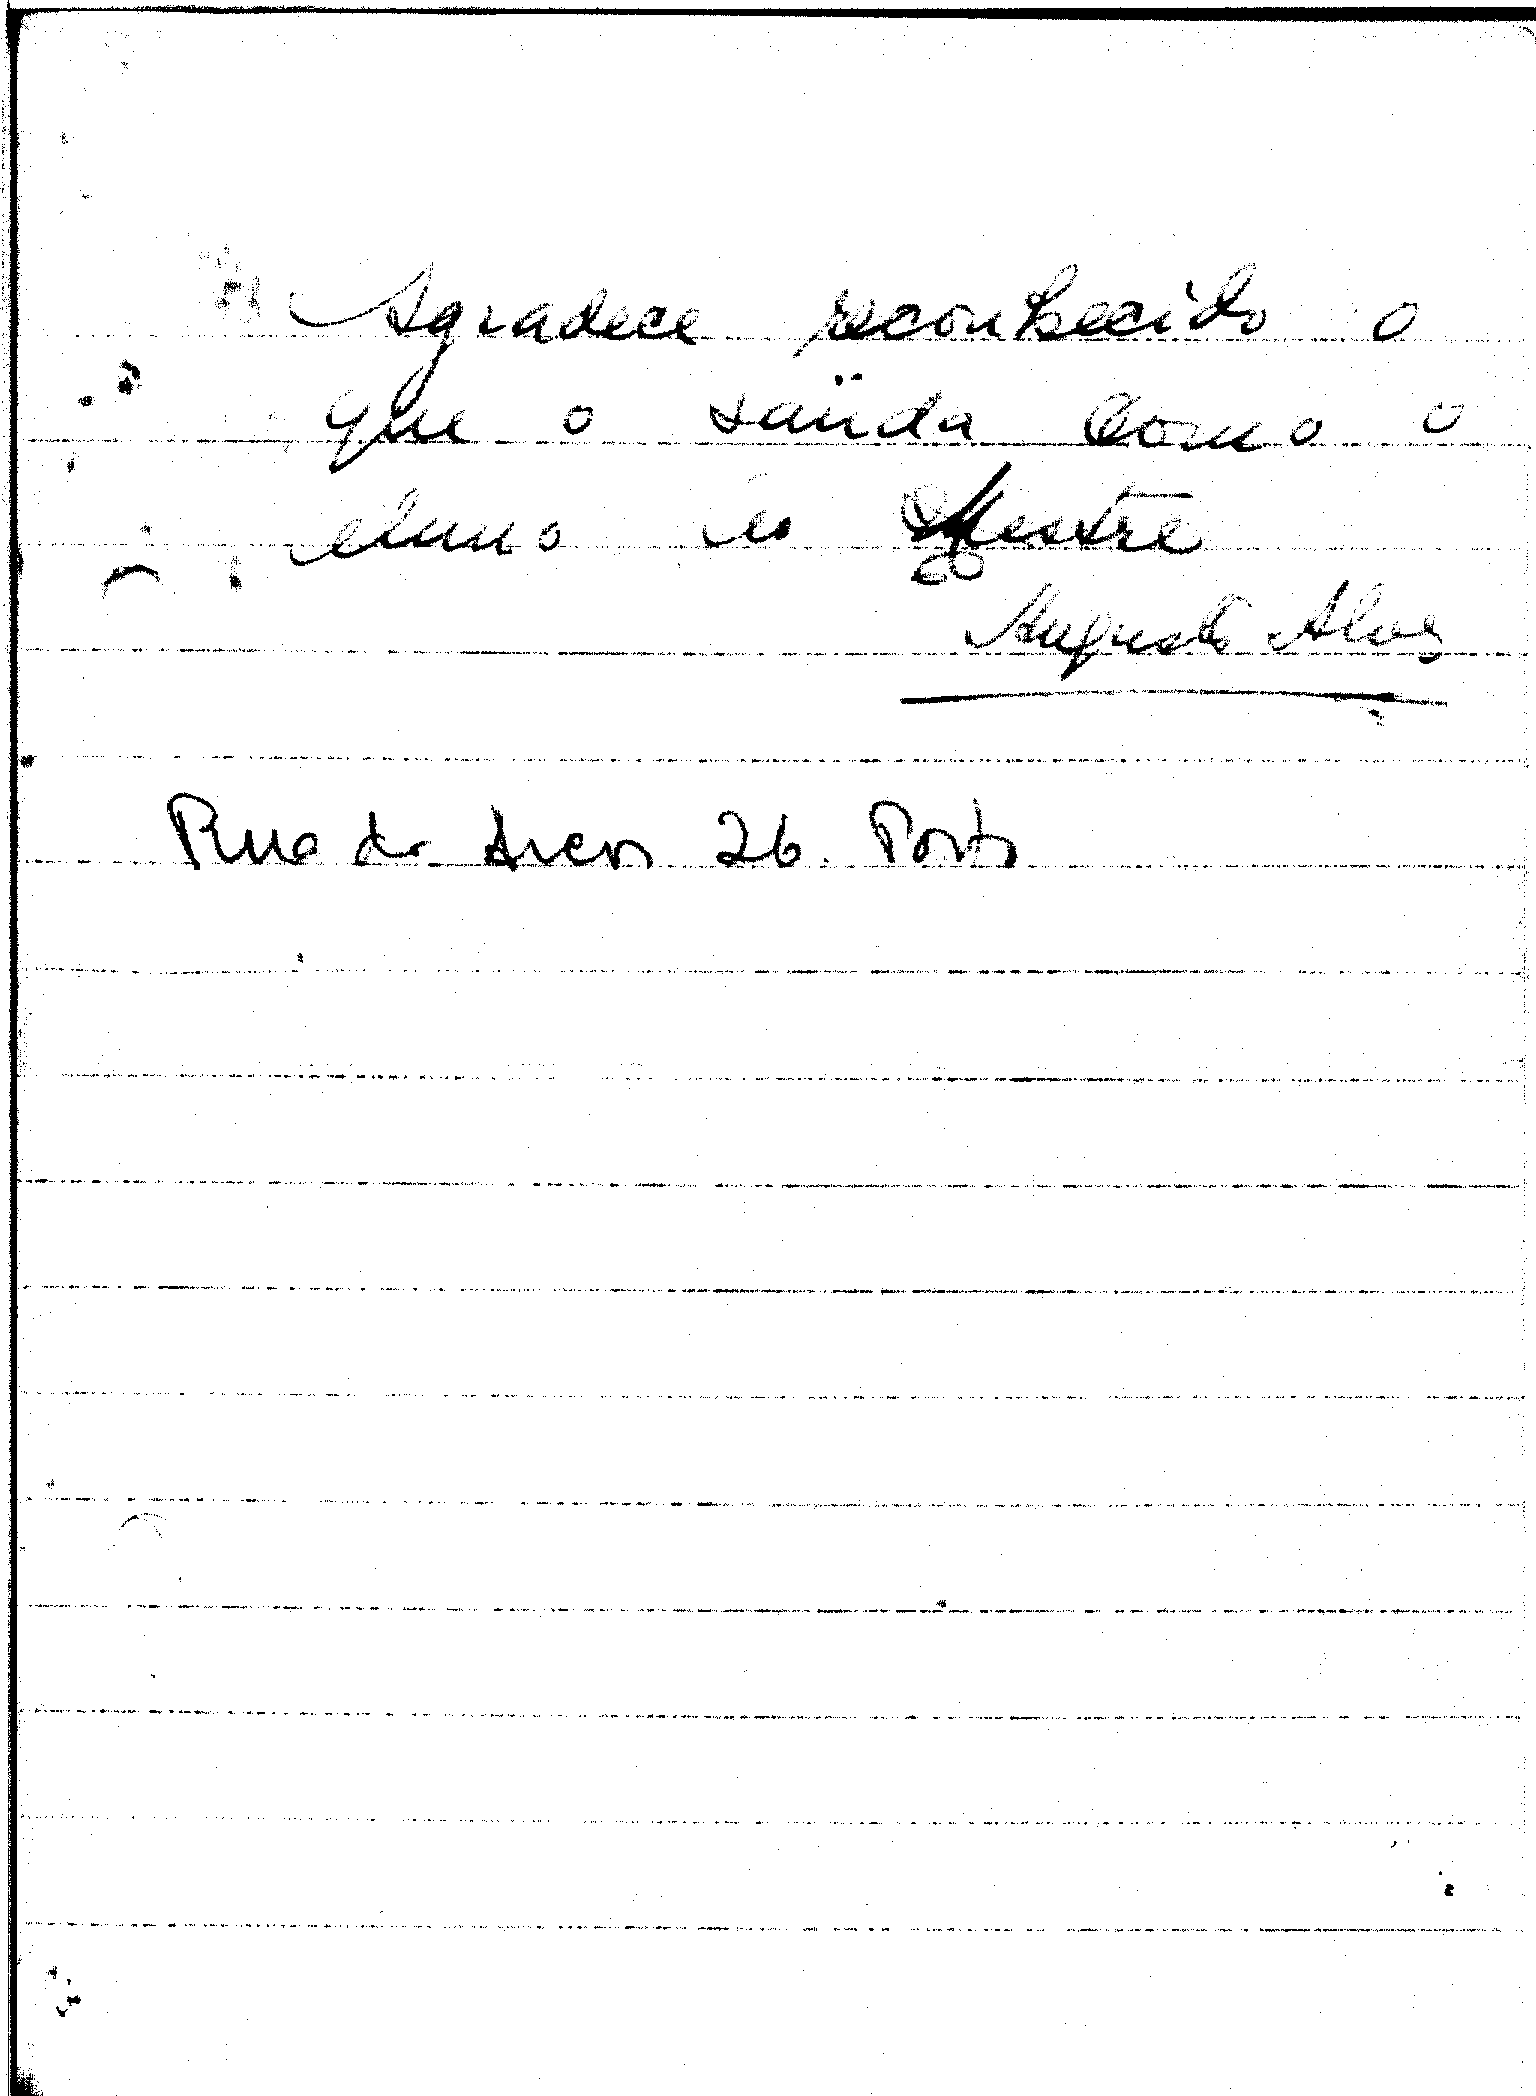 Agradece reconhecido o
que o saüda como o
aluno ao Mestre
Augusto Alves
Rua do Arcos 26 Porto